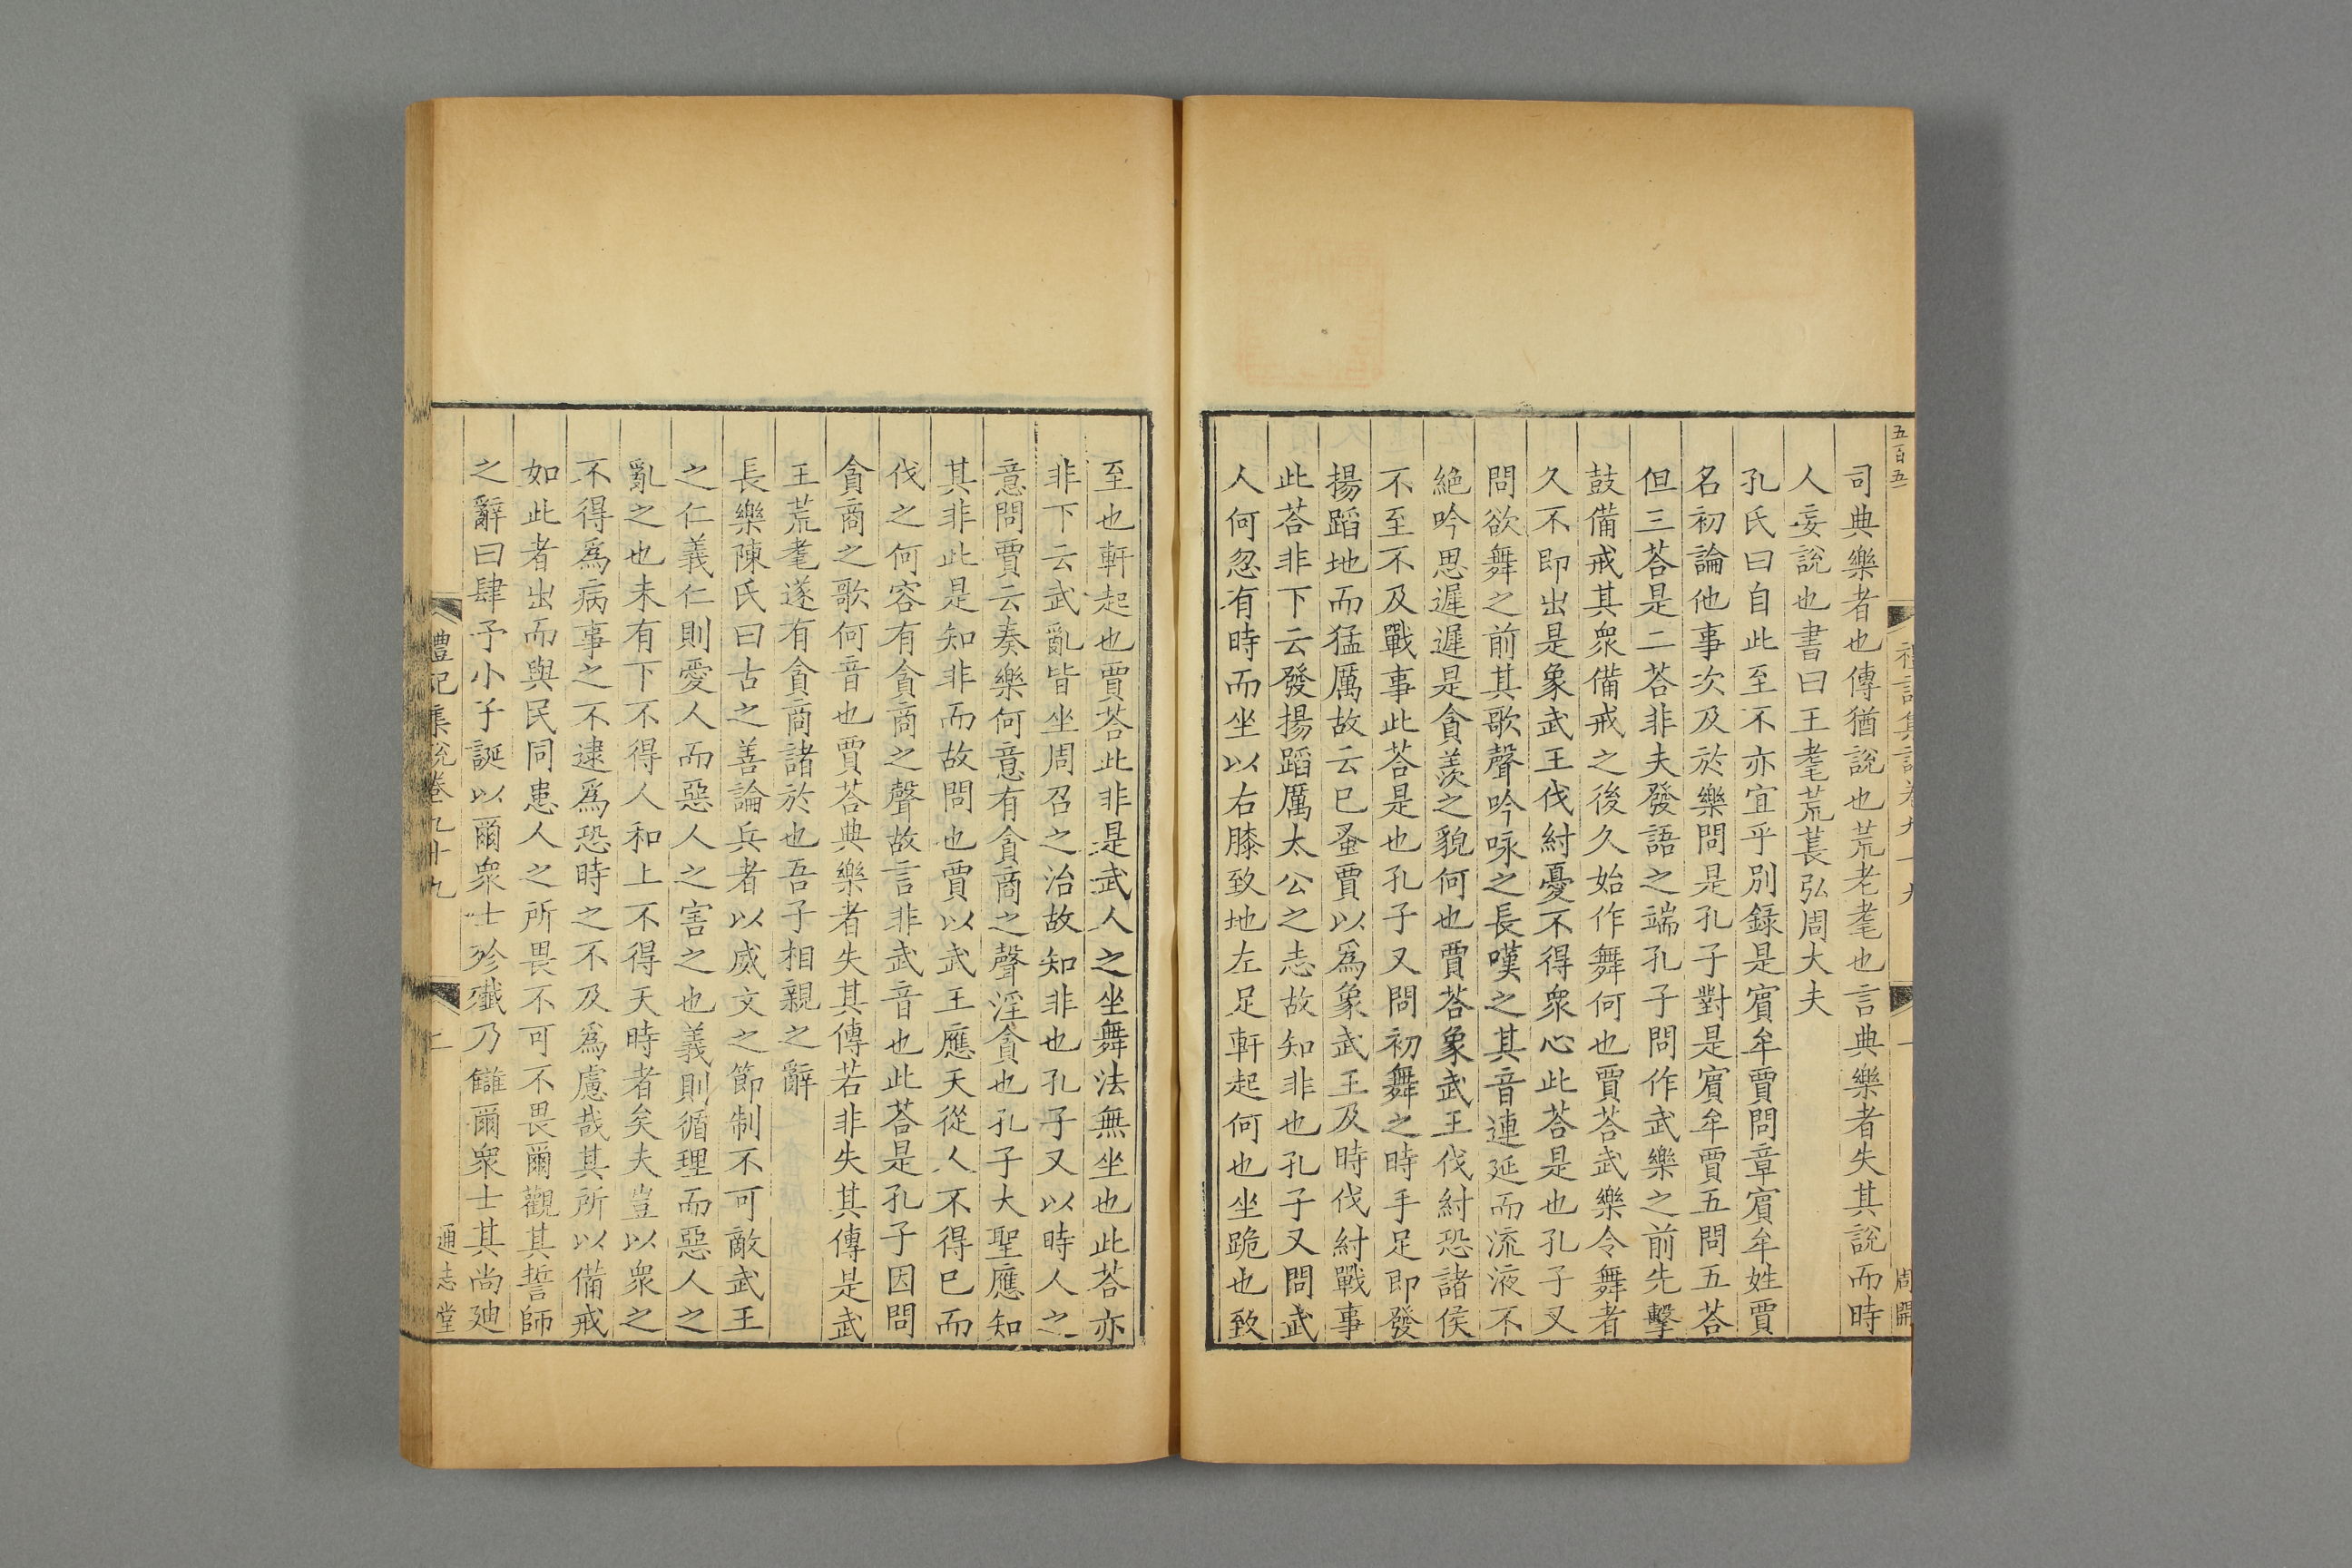 五百五
司典樂者也傳猶說也荒老耄也言典樂者失其說而時
人妄說也書曰王耄荒萇弘周大夫
孔氏曰自此至不亦宜乎別錄是賔牟賈問章賔牟姓賈
名初論他事次及於樂問是孔子對是賔牟賈五問五荅
但三荅是二荅非夫發語之端孔子問作武樂之前先擊
鼓備戒其衆備戒之後久始作舞何也賈荅武樂令舞者
久不即出是象武王伐紂憂不得衆心此荅是也孔子又
問欲舞之前其歌聲吟咏之長嘆之其音連延而流液不
絶吟思遲遲是貪羨之貌何也賈荅象武王伐紂恐諸侯
不至不及戰事此荅是也孔子又問初舞之時手足即發
揚蹈地而猛厲故云已蚤賈以爲象武王及時伐紂戰事
此荅非下云發揚蹈厲太公之志故知非也孔子又問武
人何忽有時而坐以右膝致地左足軒起何也坐跪也致
至也軒起也賈荅此非是武人之坐舞法無坐也此荅亦
非下云武亂皆坐周召之治故知非也孔子又以時人之
意問賈云奏樂何意有貪商之聲淫貪也孔子大聖應知
其非此是知非而故問也賈以武王應天從人不得已而
伐之何容有貪商之聲故言非武音也此荅是孔子因問
貪商之歌何音也賈荅典樂者失其傳若非失其傳是武
王荒耄遂有貪商諸於也吾子相親之辭
長樂陳氏曰古之善論兵者以威文之節制不可敵武王
之仁義仁則愛人而惡人之害之也義則循理而惡人之
亂之也未有下不得人和上不得天時者矣夫豈以衆之
不得爲病事之不逮爲恐時之不及爲慮哉其所以備戒
如此者出而與民同患人之所畏不可不畏爾觀其誓師
之辭曰肆予小子誕以爾衆士殄殲乃讎爾衆士其尚迪
禮記集說卷九十九
二
通志堂